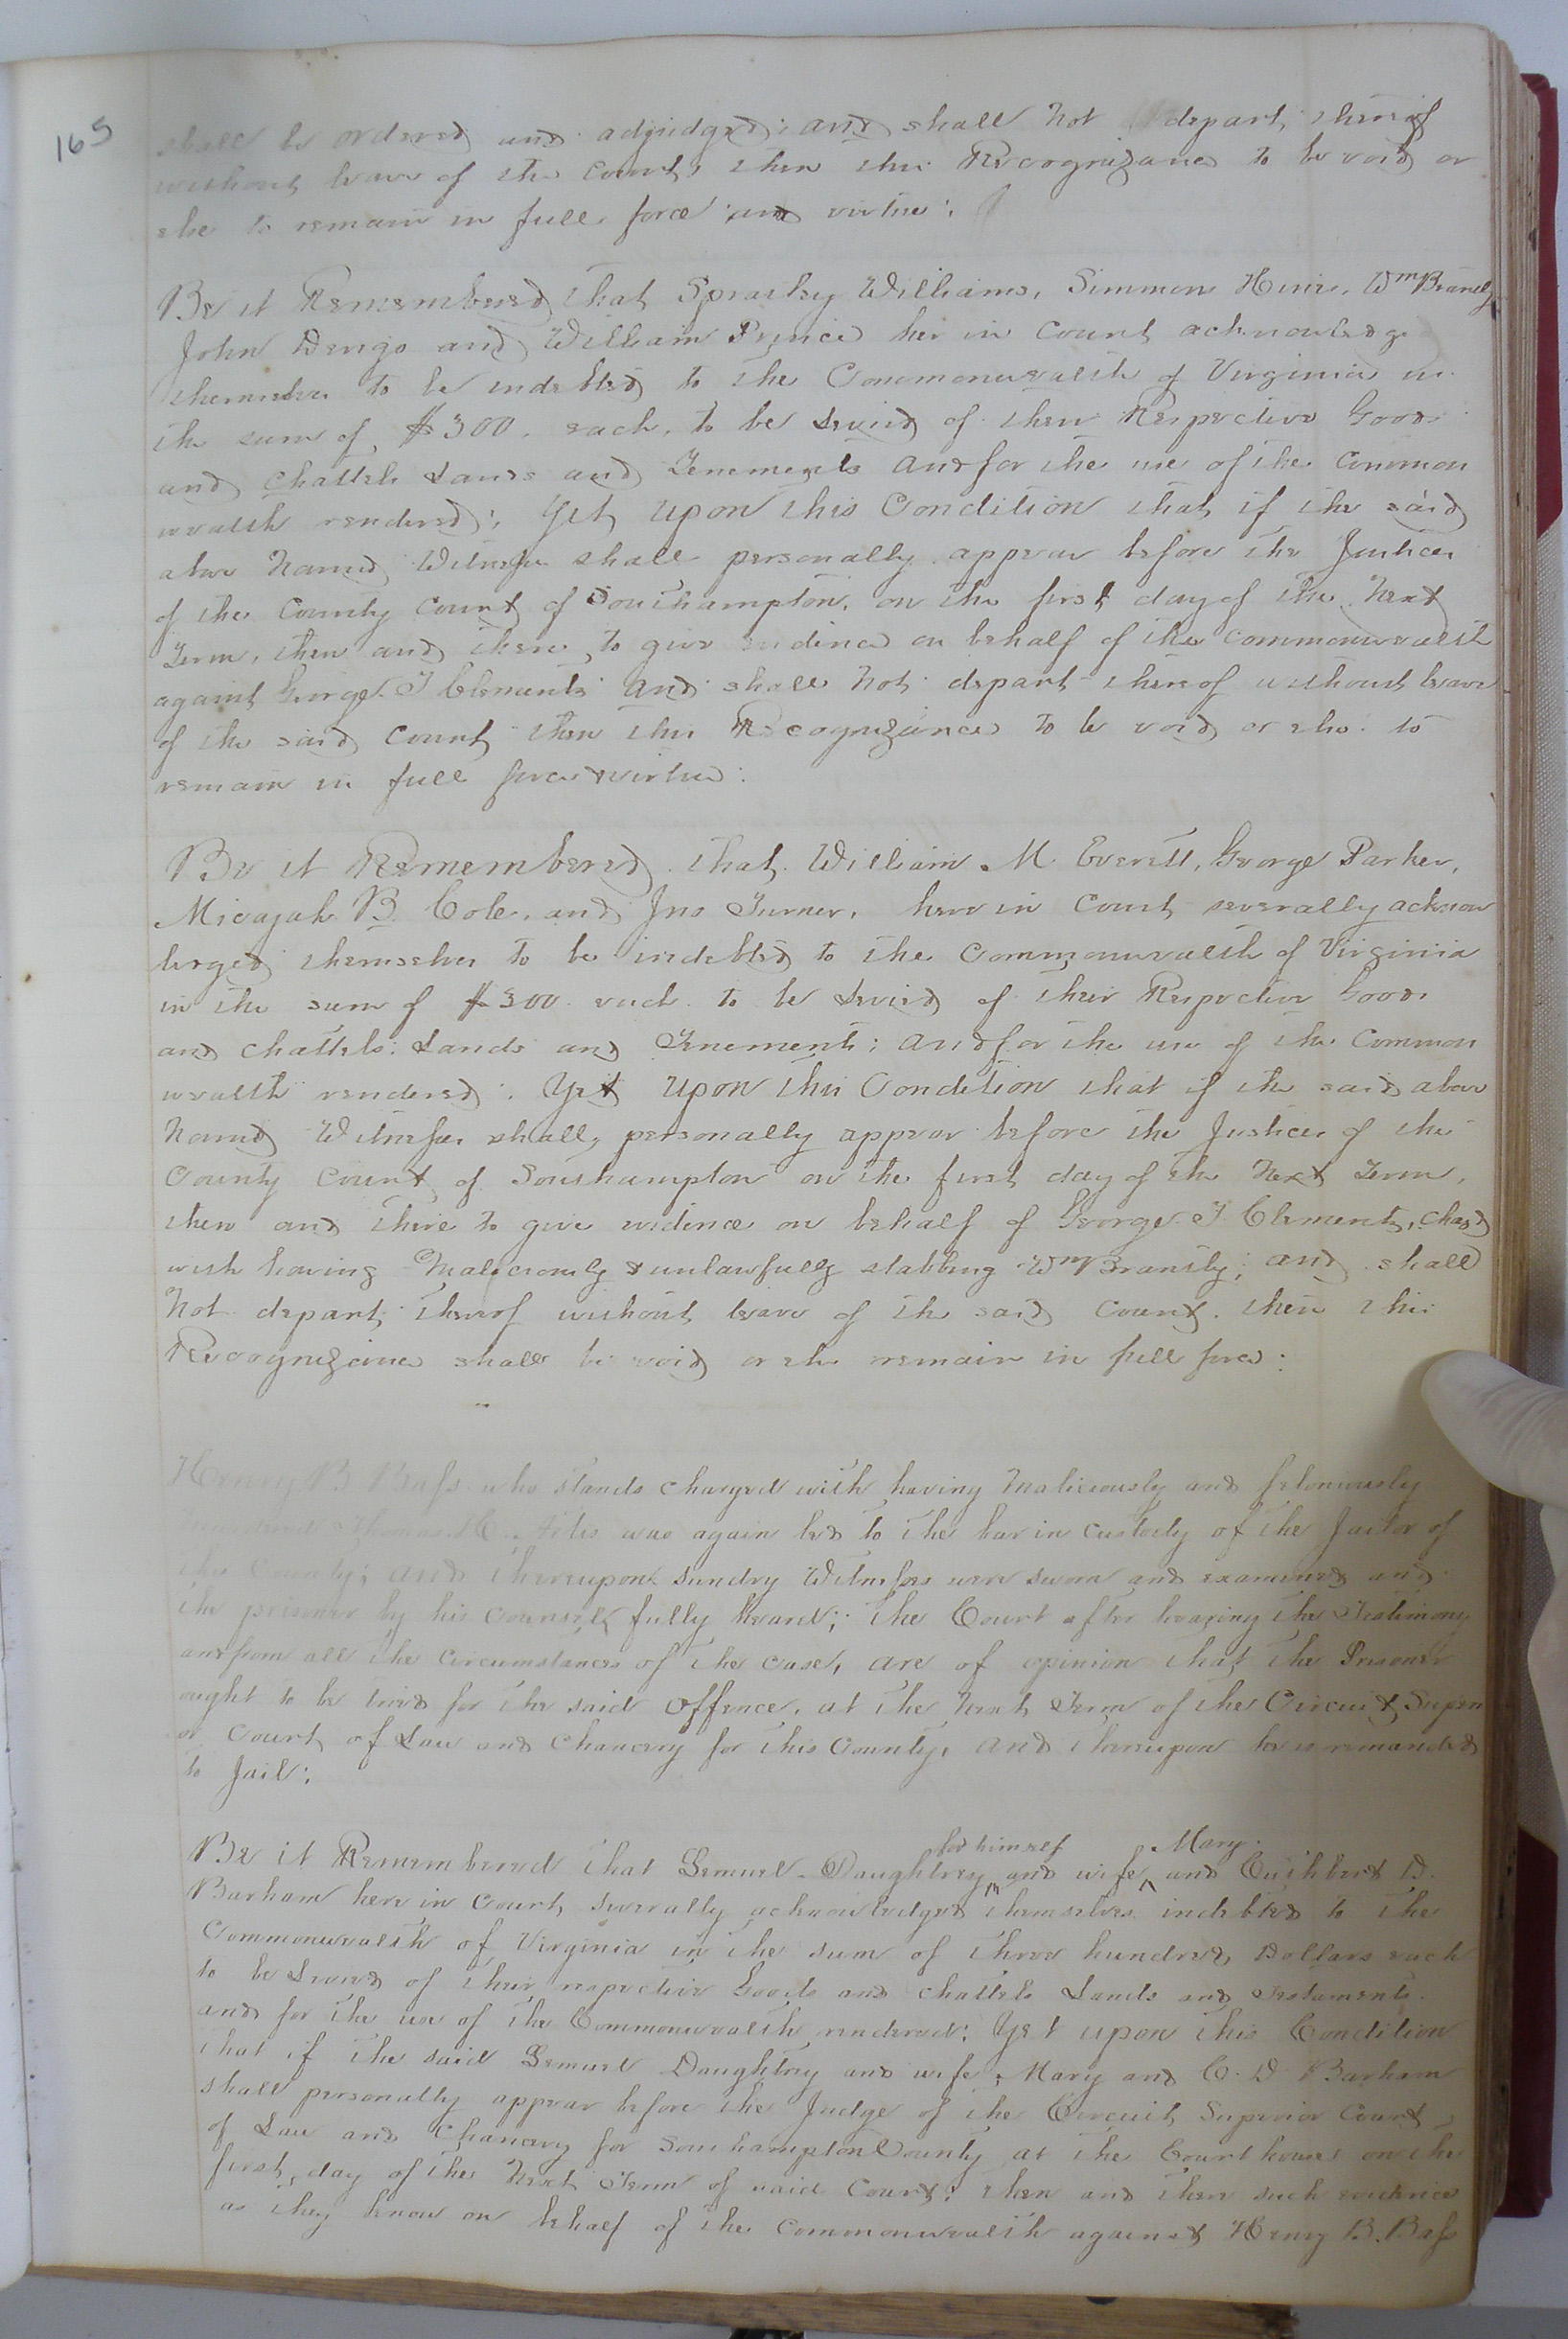 165
shall be ordered and adjudged: and shall not depart thereof
without leave of the Court, then this Recognizance to be void or
else to remain in full force and virtue:
Be it Remembered that Spratley Williams, Simmon Wm Brantly
John and William Prince her in Court acknowledge
themselves to be indebted to the Commonwealth of Virginia in
the sum of $300. each, to be Levied of their Respective Goods
and chattels Lands and Tenements and for the use of the Common
wealth rendered: Yet upon this Condition that if the said
above Named Witnesses shall personally appear before the Justices
of the County Court of Southampton, on the first day of the Next
Term, then and there to give evidence on behalf of the commonwealth
against George T Clements and shall Not depart thereof without leave
of the said Court then this Recognizance to be void or else to
remain in full force & virtue:
Be it Remembered that William M Everett, George Parker,
Micajah B. Cole, and Jno Turner, here in Court severally acknow
ledged themselves to be indebted to the Commonwealth of Virginia
in the sum of $300 each to be Levied of their Respective Goods
and chattels: Lands and Tenements: and for the use of the Common
wealth rendered: Yet upon this Condition that if the said above
Named Witnesses shall, personally appear before the Justices of the
County Court of Southampton on the first day of the Next Term,
then and there to give evidence on behalf of George T. Clements, chasd
with having Maliciously & unlawfully stabbing Wm Brantly; and shall
Not depart thereof without leave of the said Court. then this
Recognizance shall be void or else remain in full force:
Henry B Bass who stands charged with having Maliciously and feloniously
Thomas was again led to the bar in custody of the Jailor of
this County; and thereupon sundry Witnesses were sworn and examined and
the prisoner by his counsel fully heard; The Court after hearing the Testimony
and from all the circumstances of the case, are of opinion that the Prisoner
ought to be tried for the said Offence, at the Next Term of the Circuit Superi
or Court of Law and Chancery for this County, and thereupon he is remanded
to Jail:
for himself Mary
Be it Remembered that Lemuel Daughtrey and wife and Cuthbert D.
Barham here in Court severally acknowledged themselves indebted to the
Commonwealth of Virginia in the sum of three hundred Dollars each
to be Levied of their respective Goods and chattels Lands and Testaments
and for the use of the Commonwealth rendered: Yet upon this Condition
that if the said Lemuel Daughtrey and wife, Mary and C. D Barham
shall personally appear before the Judge of the Circuit Superior Court
of Law and Chancery for Southampton County at the Court house on the
first, day of the Next Term of said Court: then and then such evidence
as they know on behalf of the commonwealth against Henry B. Bass